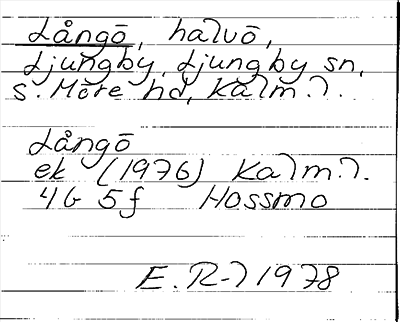 Långö, halvö,
Ljungby, Ljungby sn,
S. Möre hd, Kalm.l.
Långö
ek (1976) Kalm.l.
4G 5f Hossmo
E.R-l 1978